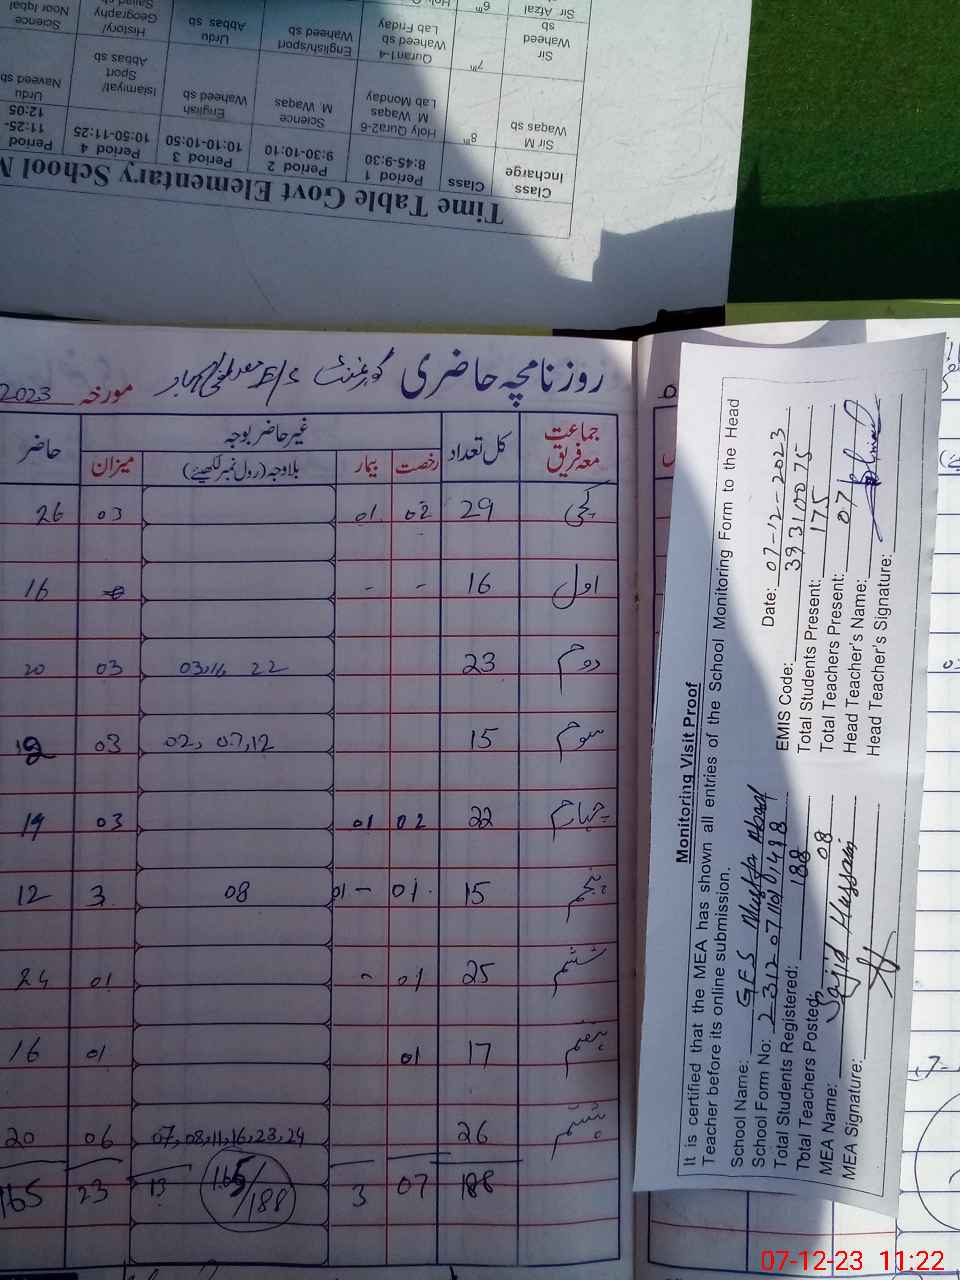 Time Table Govt Elementary School
Class Incharge Class Period 1 8:45-9:30 Period 2 9:30-10:10 Period 3 10:10-10:50 Period 4 10:50-11:25 Period 11:25-12:05
Sir M Waqas sb 8th Holy Qura2-6 M Waqas Lab Monday Science M. Waqas English Waheed sb Islamiyat/ Sport Abbas sb Urdu Naveed sb
Sir Waheed sb 7th Quran1-4 Waheed sb Lab Friday English/sport Waheed sb Urdu Abbas sb History/ Geography Science Noor Iqbal
Sir Afzal 6th
روزنامچہ حاضری گورنمنٹ مورخہ 2023
جماعت معہ فریق کل تعداد غیر حاضر بوجہ حاضر
رخصت بیمار بلاوجہ (رول نمبر لکھیئے) میزان
کچی 29 02 01 03 26
اول 16 - - 16
دوم 23 03,16, 22 03 20
سوم 15 02, 07,12 03 12
چہارم 22 02 01 03 19
پنجم 15 01 01 08 3 12
ششم 25 01 - 01 24
ہفتم 17 01 01 16
ہشتم 26 07,08,11,16,23,24 06 20
188 07 3 165/188 13 23 165
Monitoring Visit Proof
It is certified that the MEA has shown all entries of the School Monitoring Form to the Head
Teacher before its online submission.
Date: 07-12-2023
School Name: GES Mustafa Abad EMIS Code: 39310075
School Form No: Total Students Present: 175
Total Students Registered: 188 Total Teachers Present: 07
Total Teachers Posted: 08 Head Teacher's Name:
MEA Name: Sajid Hussain Head Teacher's Signature:
MEA Signature:
07-12-23 11:22